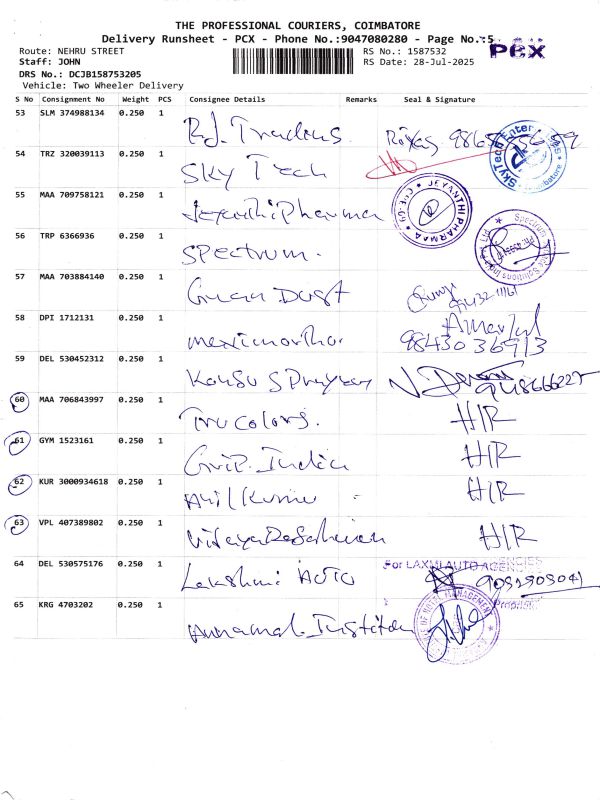 THE PROFESSIONAL COURIERS, COIMBATORE
Delivery Runsheet - PCX - Phone No.:9047080280 - Page No.:5
PCX
Route: NEHRU STREET
RS No.: 1587532
Staff: JOHN
RS Date: 28-Jul-2025
DRS No.: DCJB158753205
Vehicle: Two Wheeler Delivery
S No Consignment No Weight PCS Consignee Details Remarks Seal & Signature
53 SLM 374988134 0.250 1 R.J. Traders.
54 TRZ 320039113 0.250 1 Sky Tech
SkyTech Enter
Coimbatore
55 MAA 709758121 0.250 1 Jeyanthi Pharmaa
JEYANTHI PHARMAA
56 TRP 6366936 0.250 1 Spectrum.
Spectrum Solutions Pvt Ltd
57 MAA 703884140 0.250 1
58 DPI 1712131 0.250 1
98430 36913
59 DEL 530452312 0.250 1
60 MAA 706843997 0.250 1 Tru Colors. H/R
61 GYM 1523161 0.250 1 India H/R
62 KUR 3000934618 0.250 1 Anil Kumar H/R
63 VPL 407389802 0.250 1 H/R
64 DEL 530575176 0.250 1 Lakshmi Auto
For LAXMI AUTO AGENCIES
65 KRG 4703202 0.250 1
MANAGEMENT